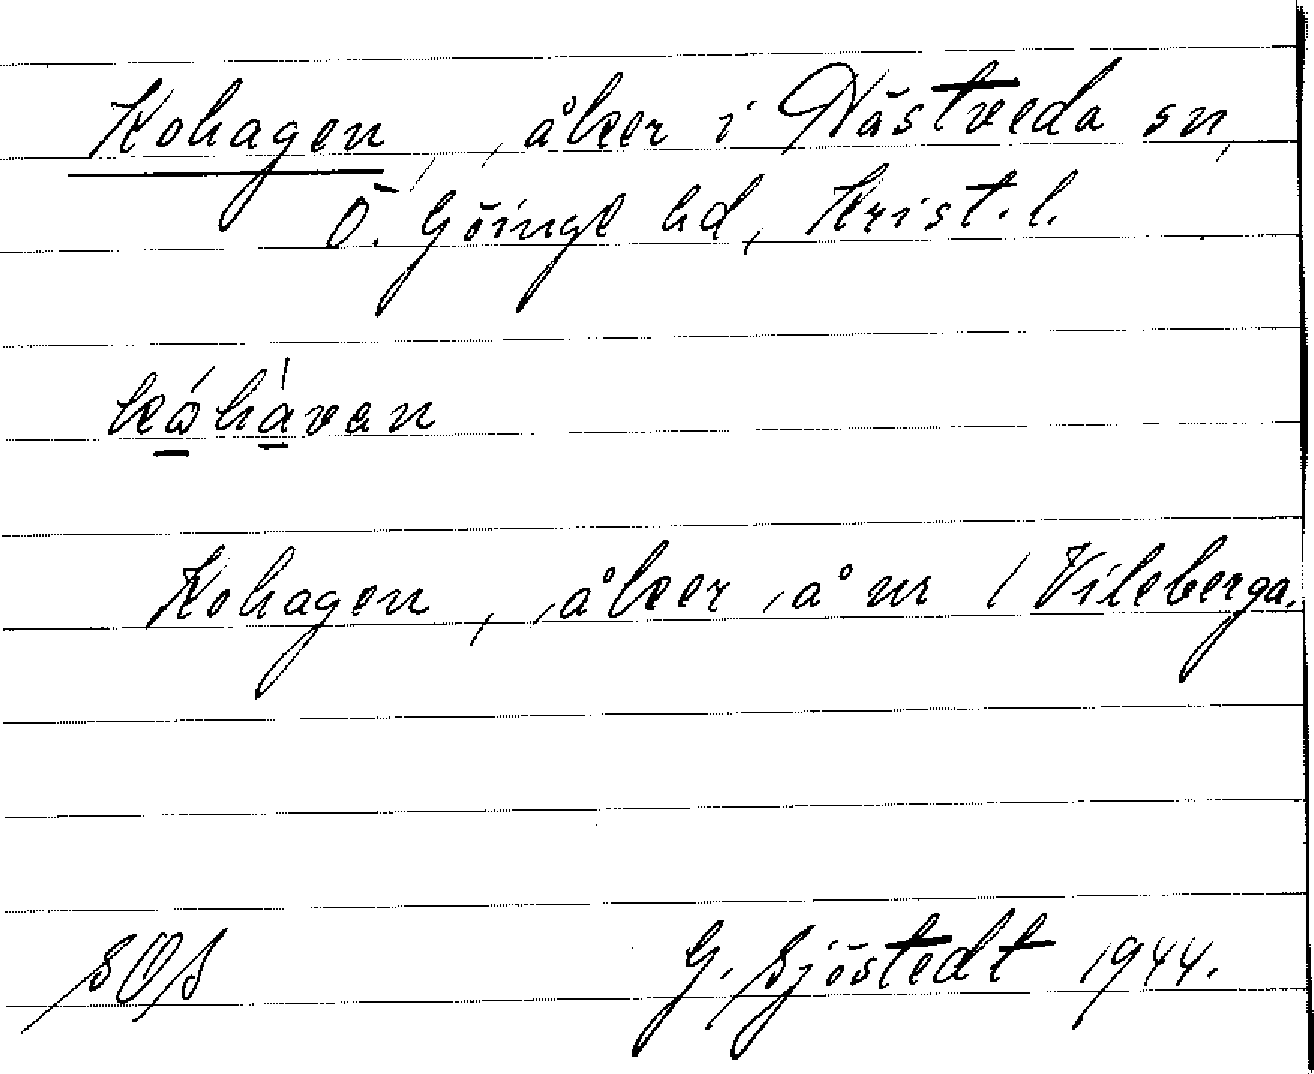 Kohagen, åker i Nästveda sn,
Ö. Göinge hd, Krist. l.
kóhàvan
Kohagen, åker, å nr 1 Vileberga.
SOS
G. Sjöstedt 1944.